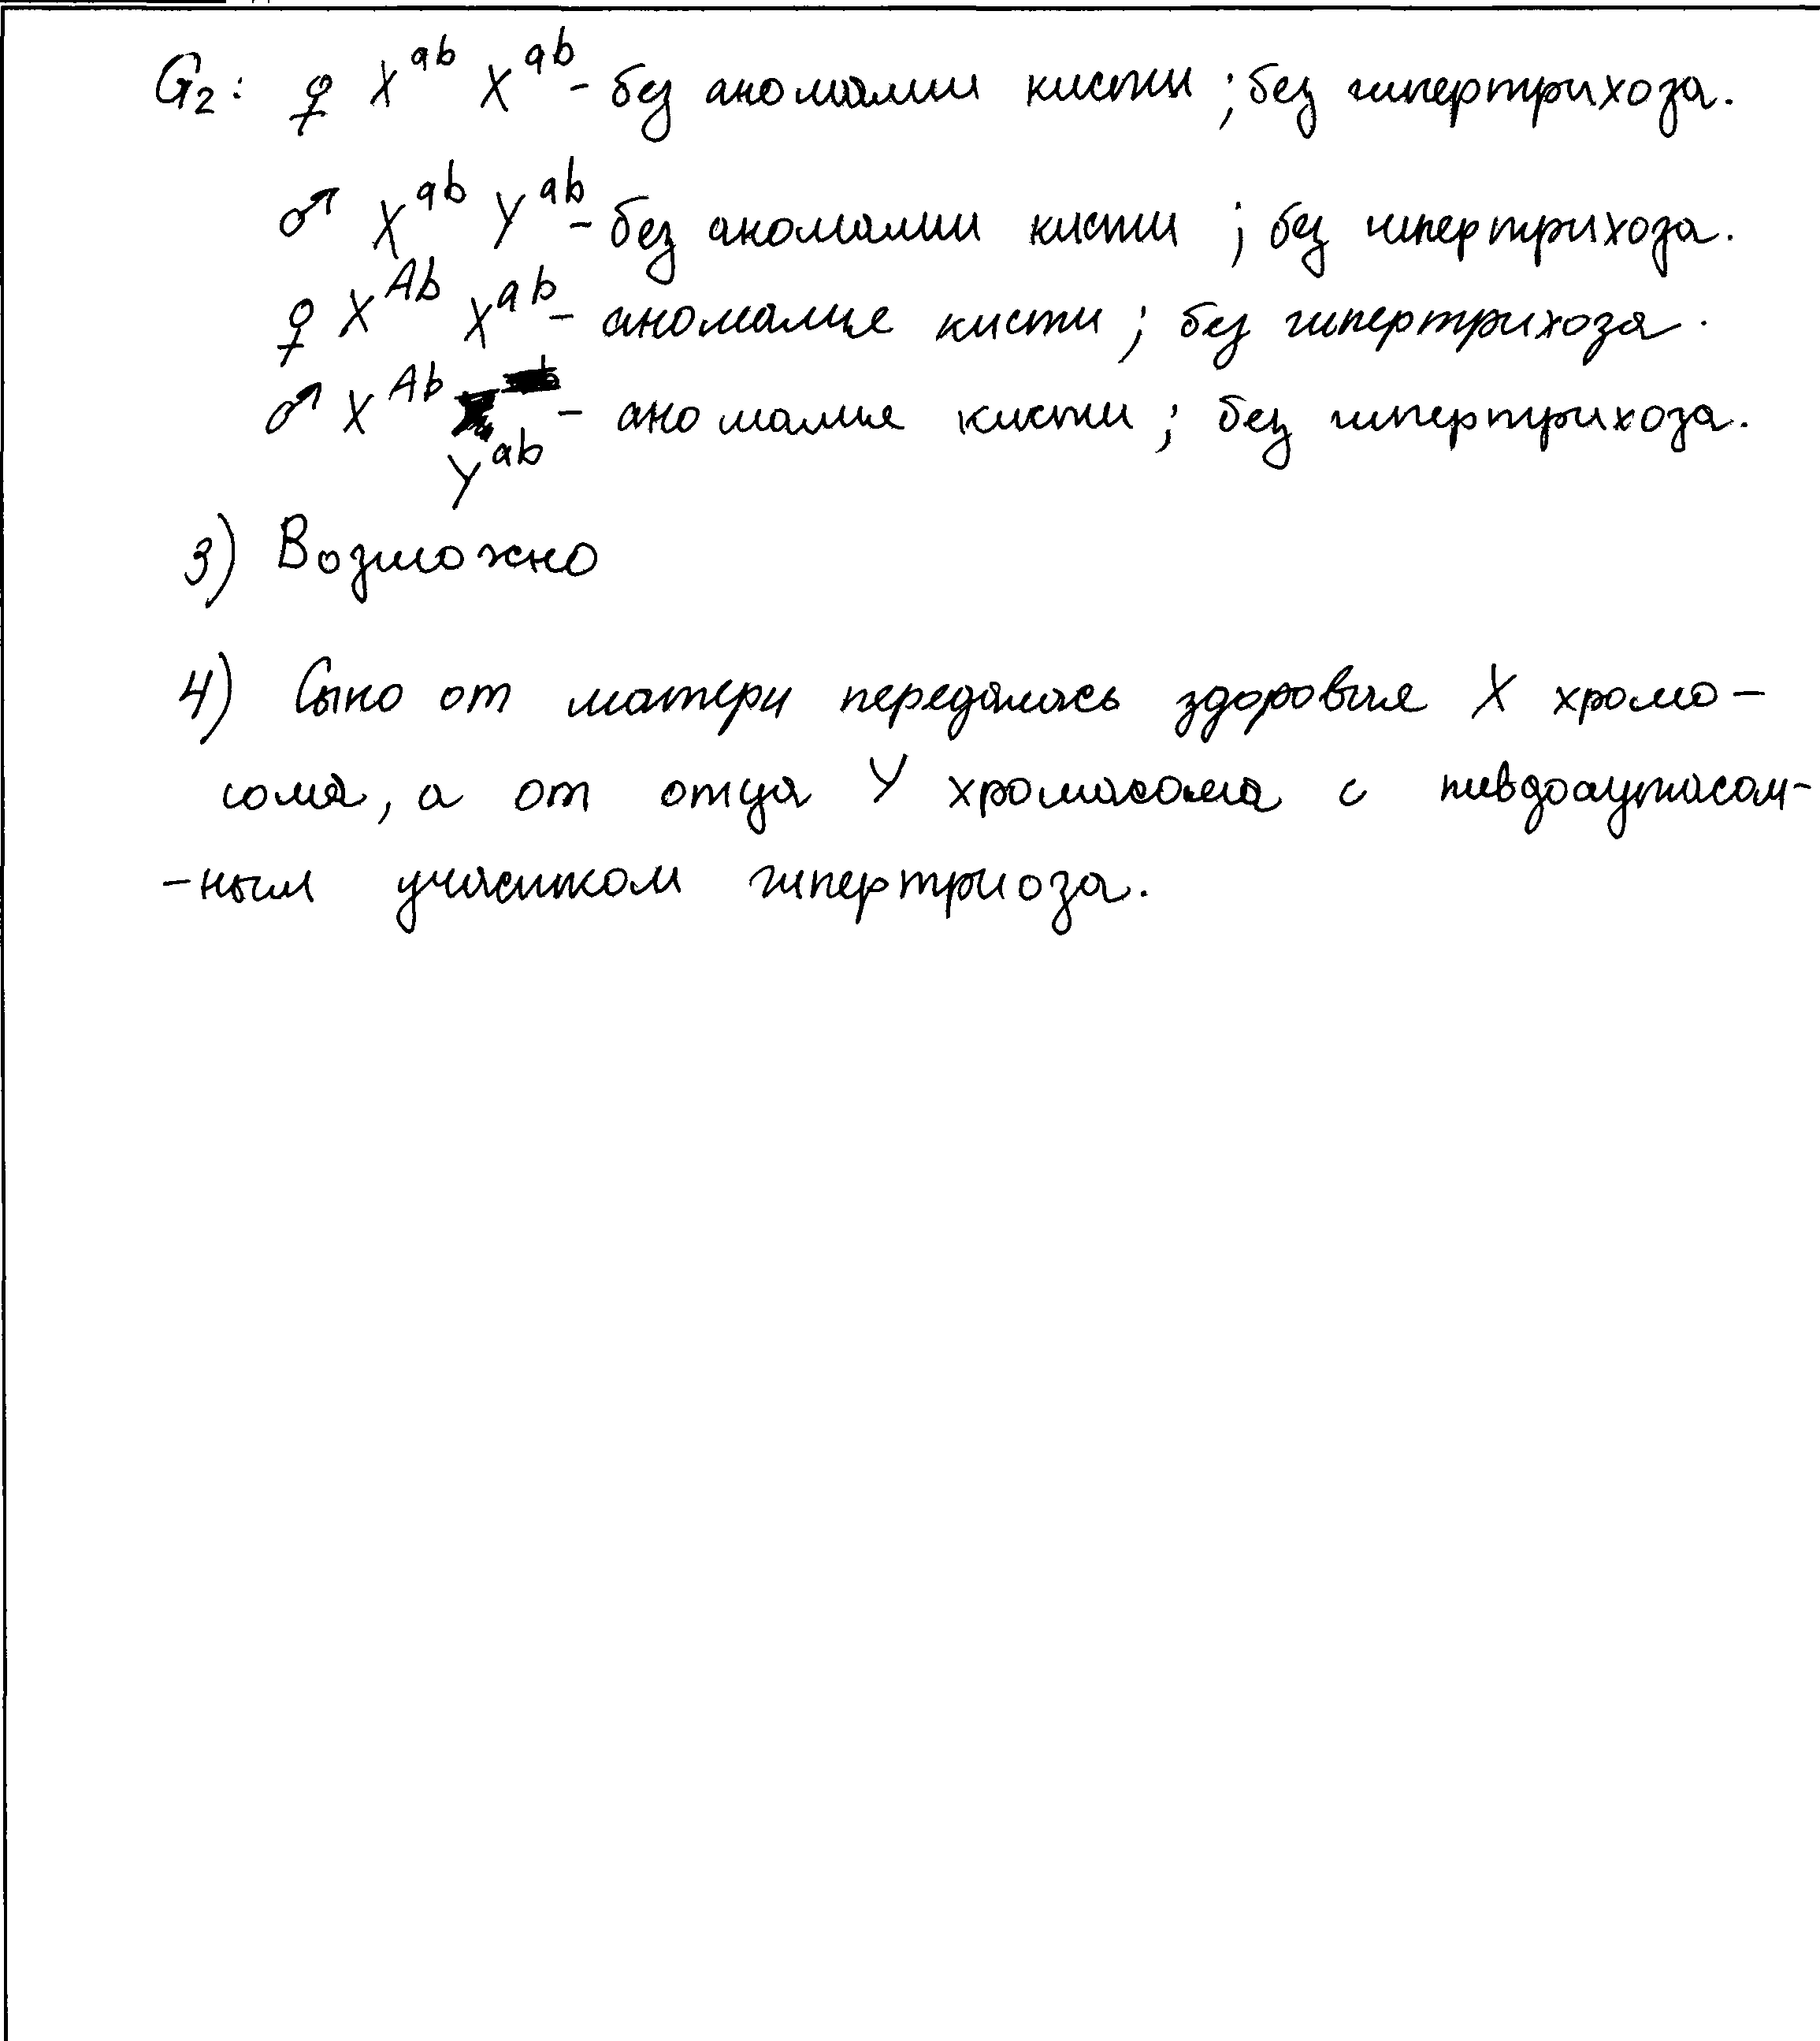 G₂: ♀ Xᵃᵇ Xᵃᵇ - без аномалии кисти ; без гипертрихоза.
♂ Xᵃᵇ Yᵃᵇ - без аномалии кисти ; без гипертрихоза.
♀ Xᴬᵇ Xᵃᵇ - аномалия кисти ; без гипертрихоза.
♂ Xᴬᵇ Yᵃᵇ - аномалия кисти ; без гипертрихоза.
3) Возможно
4) Сыно от матери передалась здоровая X хромо-
сома, а от отца Y хромасома с
-ным участком гипертриоза.